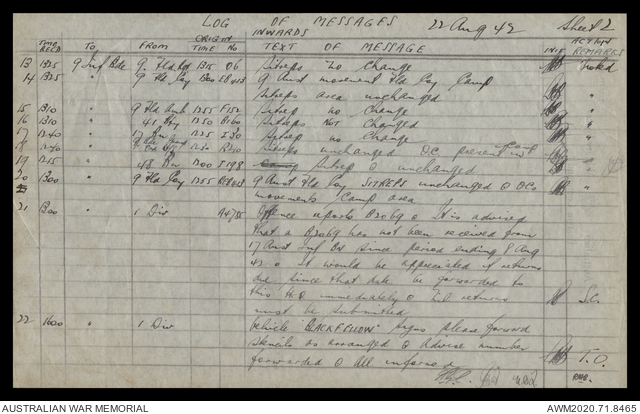 LOG OF MESSAGES 22 Aug 42 Sheet 2
INWARDS
TIME RECD TO FROM ORIGIN TIME No TEXT OF MESSAGE INIT ACTION REMARKS
13 1325 9 Inf Bde 9 Fld Regt 1315 06 Sitreps No Change Noted
14 1325 " 9 Fld Coy 1300 9 Aust movement Fld Coy Camp "
Sitreps area unchanged
15 1310 " 9 Fld Amb 1255 F152 Sitrep no Change "
16 1310 " 41 1250 B160 Sitreps NOT Changed "
17 1340 " 17 Bn 1325 I30 Sitrep no Change "
18 1340 " Sitreps unchanged O.C. present
19 1315 " 48 Bn 1300 I198 Sitrep O unchanged "
20 1300 " 9 Fld Coy 1255 9 Aust Fld Coy SITREPS unchanged O OCs "
movements Camp area
21 1300 " 1 Div A4785 Offence reports O It is advised
that a has not been received from
17 Aust Inf Bn since period ending 8 Aug
42 O It would be appreciated if returns
due since that date be forwarded to
this H.Q immediately O returns S.C.
must be submitted
22 1600 " 1 Div Vehicle BLACKFELLOW signs please forward
stencils as arranged O Advise number
forwarded O All informed T.O.
RMB.
AUSTRALIAN WAR MEMORIAL AWM2020.71.8465